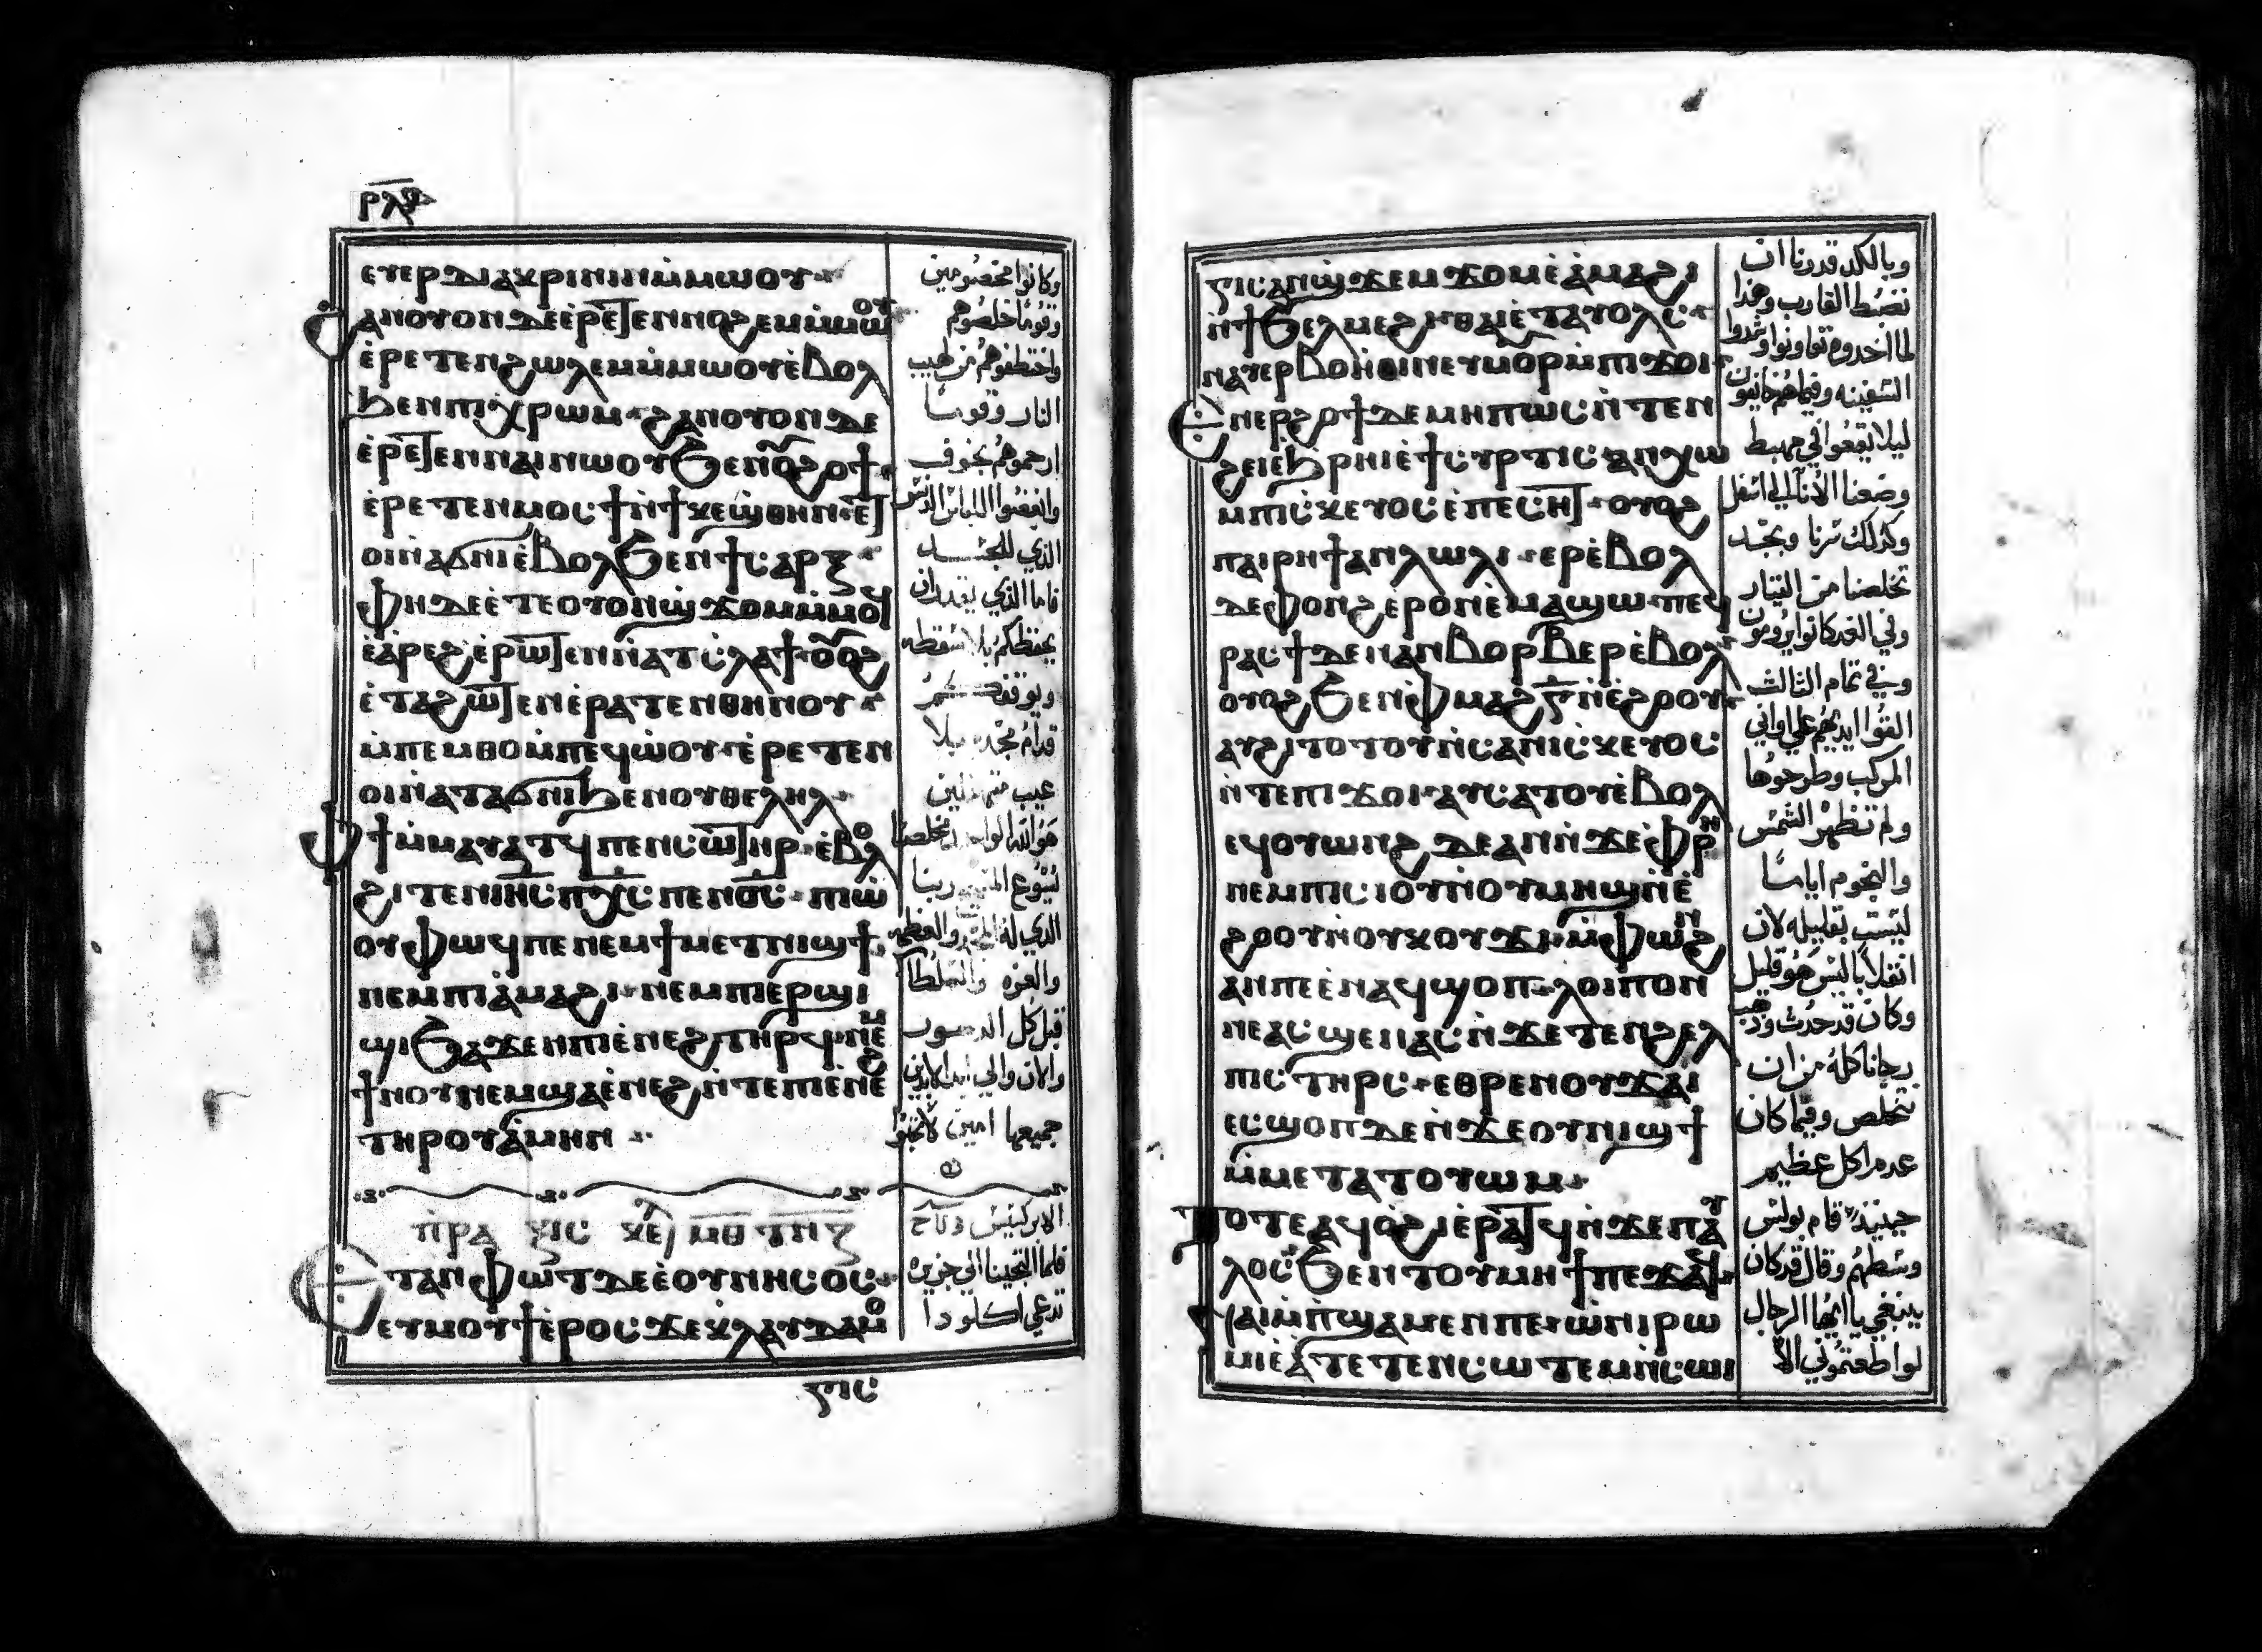 ⲣⲗⲋ
ⲉⲩⲉⲣⲇⲓⲁⲕⲣⲓⲛⲓⲛ ⲙ̀ⲙⲱⲟⲩ
ϩⲁⲛⲟⲩⲟⲛ ⲇⲉ ⲉ̀ⲣⲉⲧⲉⲛⲛⲟϩⲉⲙ ⲙ̀ⲙⲱⲟⲩ
ⲉ̀ⲣⲉⲧⲉⲛϩⲱⲗⲉⲙ ⲙ̀ⲙⲱⲟⲩ ⲉ̀ⲃⲟⲗ
ϧⲉⲛ ⲡⲓⲭⲣⲱⲙ ϩⲁⲛⲟⲩⲟⲛ ⲇⲉ
ⲉ̀ⲣⲉⲧⲉⲛⲛⲁⲓ ⲛⲱⲟⲩ ϧⲉⲛ ⲟⲩϩⲟϯ
ⲉ̀ⲣⲉⲧⲉⲛⲙⲟⲥϯ ⲛ̀ϯⲕⲉϣⲑⲏⲛ ⲉⲧ
ⲟⲓ ⲛ̀ⲁϭⲛⲓ ⲉ̀ⲃⲟⲗ ϧⲉⲛ ϯⲥⲁⲣⲝ
ⲫⲏ ⲇⲉ ⲉ̀ⲧⲉ ⲟⲩⲟⲛ ϣϫⲟⲙ ⲙ̀ⲙⲟϥ
ⲉ̀ⲁ̀ⲣⲉϩ ⲉ̀ⲣⲱⲧⲉⲛ ⲛ̀ⲁⲧⲥⲗⲁϯ ⲟⲩⲟϩ
ⲉ̀ⲧⲁϩⲱⲧⲉⲛ ⲉ̀ⲣⲁⲧⲉⲛⲑⲏⲛⲟⲩ
ⲙ̀ⲡⲉⲙⲑⲟ ⲙ̀ⲡⲉϥⲱ̀ⲟⲩ ⲉ̀ⲣⲉⲧⲉⲛ
ⲟⲓ ⲛ̀ⲁⲧⲁϭⲛⲓ ϧⲉⲛ ⲟⲩⲑⲉⲗⲏⲗ
ⲫϯ ⲙ̀ⲙⲁⲩⲁⲧϥ ⲡⲉⲛⲥⲱⲧⲏⲣ ⲉ̀ⲃⲟⲗ
ϩⲓⲧⲉⲛ ⲓⲏⲥ ⲡⲭⲥ ⲡⲉⲛⲟ̅ⲥ̅ ⲡⲓⲱ̀
ⲟⲩ ⲫⲱϥ ⲡⲉ ⲛⲉⲙ ϯⲙⲉⲧⲛⲓϣϯ
ⲛⲉⲙ ⲡⲓⲁ̀ⲙⲁϩⲓ ⲛⲉⲙ ⲡⲓⲉⲣϣⲓ
ϣⲓ ϧⲁϫⲉⲛ ⲡⲓⲉ̀ⲛⲉϩ ⲧⲏⲣϥ ⲛⲉⲙ
ϯⲛⲟⲩ ⲛⲉⲙ ϣⲁ ⲉ̀ⲛⲉϩ ⲛ̀ⲧⲉ ⲡⲓⲉ̀ⲛⲉϩ
ⲧⲏⲣⲟⲩ ⲁ̀ⲙⲏⲛ
ⲡⲣⲁⲝⲓⲥ ⲕⲉ ⲙⲑ ⲧⲏⲍ
ⲉⲧⲁⲛⲫⲱⲧ ⲇⲉ ⲉ̀ⲟⲩⲛⲏⲥⲟⲥ
ⲉⲩⲙⲟⲩϯ ⲉ̀ⲣⲟⲥ ϫⲉ ⲕⲗⲁⲩⲇⲁ ⲙⲟ
ⲅⲓⲥ
وكانوا مخصومين
وقومًا خلصوهم
واختطفوهم من لهيب
النار وقومًا
ارحموهم بخوف
وابغضوا اللباس الدنس
الذي للجسد
فاما الذي يقدر ان
يحفظكم بلا سقطه
ويوقفكم
قدام مجده بلا
عيب متهللين
هو الله الواحد مخلصنا
يسوع المسيح ربنا
الذي له المجد والعظمه
والعزه والسلطان
قبل كل الدهور
والان والي ابد الابدين
جميعها امين
الابركسيس
فلما التجينا الي جزيره
تدعي اكلودا
ⲅⲓⲥ ⲁⲛϣϫⲉⲙϫⲟⲙ ⲉ̀ⲁ̀ⲙⲁϩⲓ
ⲛ̀ϯϧⲉⲗⲙⲉϩⲓ ⲑⲁⲓ ⲉ̀ⲧⲁⲩⲟⲗⲥ
ⲛⲁⲩⲉⲣⲃⲟⲏⲑⲓⲛ ⲉⲩⲙⲟⲣ ⲙ̀ⲡⲓϫⲟⲓ
ⲉⲛⲉⲣϩⲟϯ ⲇⲉ ⲙⲏⲡⲱⲥ ⲛ̀ⲧⲉⲛ
ϩⲉⲓ ⲉ̀ϧⲣⲏⲓ ⲉ̀ϯⲥⲩⲣⲧⲓⲥ ⲁⲛⲭⲱ
ⲙ̀ⲡⲓⲥⲕⲉⲩⲟⲥ ⲉ̀ⲡⲉⲥⲏⲧ ⲟⲩⲟϩ
ⲡⲁⲓⲣⲏϯ ⲁⲛⲗⲱⲗⲓ ⲉⲣⲉ̀ⲃⲟⲗ
ⲇⲉ ϥⲟⲛϩ ⲉ̀ⲣⲟⲛ ⲉ̀ⲙⲁϣⲱ ⲡⲉϥ
ⲣⲁⲥϯ ⲇⲉ ⲛⲁⲛⲃⲟⲣⲃⲉⲣ ⲉ̀ⲃⲟⲗ
ⲟⲩⲟϩ ϧⲉⲛ ⲫⲙⲁϩ ⲅ̅ ⲛ̀ⲉ̀ϩⲟⲟⲩ
ⲁⲩϩⲓⲧⲟⲧⲟⲩ ⲛ̀ⲥⲁ ⲛⲓⲥⲕⲉⲩⲟⲥ
ⲛ̀ⲧⲉ ⲡⲓϫⲟⲓ ⲁⲩⲥⲁⲧⲟⲩ ⲉ̀ⲃⲟⲗ
ⲉϥⲟⲩⲱⲛϩ ⲇⲉ ⲁⲛ ⲛ̀ϫⲉ ⲫⲣⲏ
ⲛⲉⲙ ⲡⲓⲥⲓⲟⲩ ⲛ̀ⲟⲩⲙⲏϣ ⲛ̀ⲉ̀
ϩⲟⲟⲩ ⲛ̀ⲟⲩⲕⲟⲩϫⲓ ⲙ̀ⲫⲱⲛϩ
ⲁⲛ ⲡⲉ ⲉ̀ⲛⲁϥϣⲟⲡ ⲗⲟⲓⲡⲟⲛ
ⲛⲉⲁⲥϣⲉⲛⲁⲥ ⲛ̀ϫⲉ ⲧⲉⲛϩⲉⲗ
ⲡⲓⲥ ⲧⲏⲣⲥ ⲉⲑⲣⲉⲛⲟⲩϫⲁⲓ
ⲉⲥϣⲟⲡ ⲇⲉ ⲛ̀ϫⲉ ⲟⲩⲛⲓϣϯ
ⲙ̀ⲙⲉⲧⲁⲧⲟⲩⲱⲙ
ⲧⲟⲧⲉ ⲁϥⲟ̀ϩⲓ ⲉ̀ⲣⲁⲧϥ ⲛ̀ϫⲉ ⲡⲁⲩ
ⲗⲟⲥ ϧⲉⲛ ⲧⲟⲩⲙⲏϯ ⲡⲉϫⲁϥ
ⲛⲁⲓ ⲙ̀ⲡϣⲁ ⲙⲉⲛ ⲡⲉ ⲱ̀ ⲛⲓⲣⲱ
ⲙⲓ ⲉ̀ⲁ̀ⲧⲉⲧⲉⲛⲥⲱⲧⲉⲙ ⲛ̀ⲥⲱⲓ
وبالكد قدرنا ان
نضبط القارب وهذا
لما اخدوه تعاونوا وشدوا
السفينه وفيما هم خايفون
ليلا يقعوا في مهبط
وضعنا الانآ الي اسفل
وكذلك سرنا وبجهد
تخلصنا من التيار
وفي الغد كانوا يرومون
وفي تمام الثالث
القوا ايديهم علي اواني
المركب وطرحوها
ولم تظهر الشمس
والنجوم ايامًا
ليست بقليله لان
انقلابًا ليس هو قليل
وكان قد حدث وذهب
رجانا كله من ان
نتخلص وفيما كان
عدم اكل عظيم
حينيذ قام بولس
وسطهم وقال قد كان
ينبغي يا ايها الرجال
لو اطعتموني الا